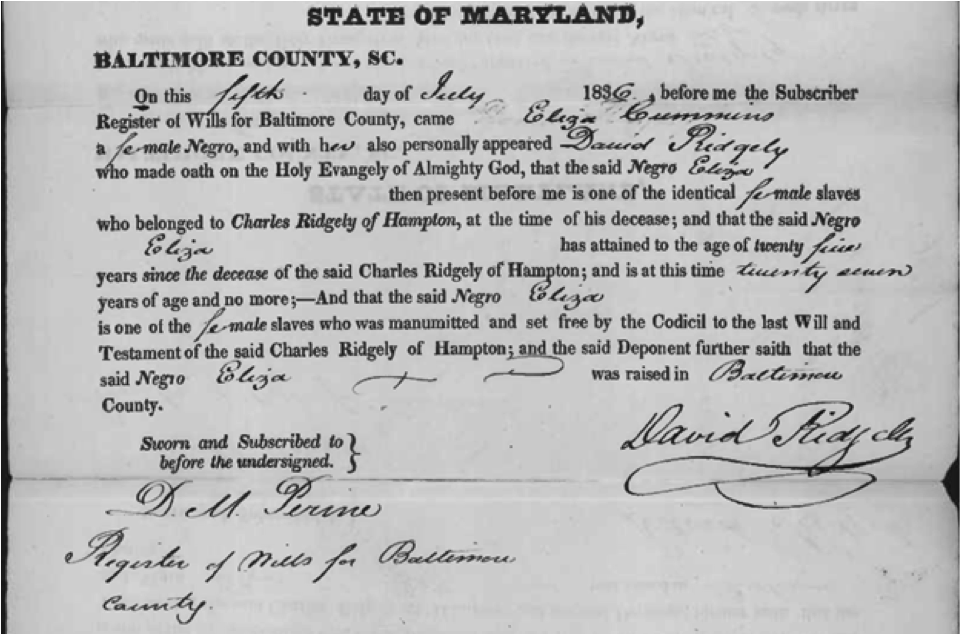 STATE OF MARYLAND,
BALTIMORE COUNTY, SC.
On this fifth day of July 1836, before me the Subscriber
Register of Wills for Baltimore County, came Eliza Cummins
a female Negro, and with her also personally appeared David Ridgely
who made oath on the Holy Evangely of Almighty God, that the said Negro Eliza
then present before me is one of the identical female slaves
who belonged to Charles Ridgely of Hampton, at the time of his decease; and that the said Negro
Eliza has attained to the age of twenty five
years since the decease of the said Charles Ridgely of Hampton; and is at this time twenty seven
years of age and no more;—And that the said Negro Eliza
is one of the female slaves who was manumitted and set free by the Codicil to the last Will and
Testament of the said Charles Ridgely of Hampton; and the said Deponent further saith that the
said Negro Eliza was raised in Baltimore
County.
David Ridgely
Sworn and Subscribed to
before the undersigned.
D. M. Perine
Register of Wills for Baltimore
County.